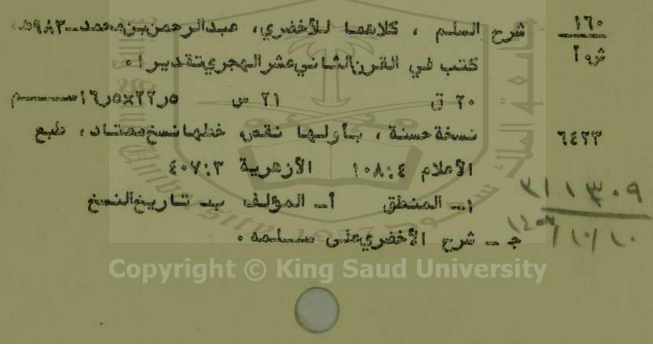 ١٦٠ شرح السلم ، كلاهما للأخضري، عبدالرحمن بن محمد ـ ٩٨٣هـ
ش٠أ كتب في القرن الثاني عشر الهجري تقديرا ٠
٢٠ ق ٢١ س ٢٢٫٥×١٦٫٥ سم
٦٤٢٣ نسخة حسنة ، بأولها نقص خطها نسخ معتاد ، طبع
الأعلام ٤:١٠٨ الأزهرية ٣:٤٠٧
١ـ المنطق أ ـ المؤلف ب ـ تاريخ النسخ
ج ـ شرح الأخضري على سلمه ٠
١٣٠٩
١٠/١٠
Copyright © King Saud University